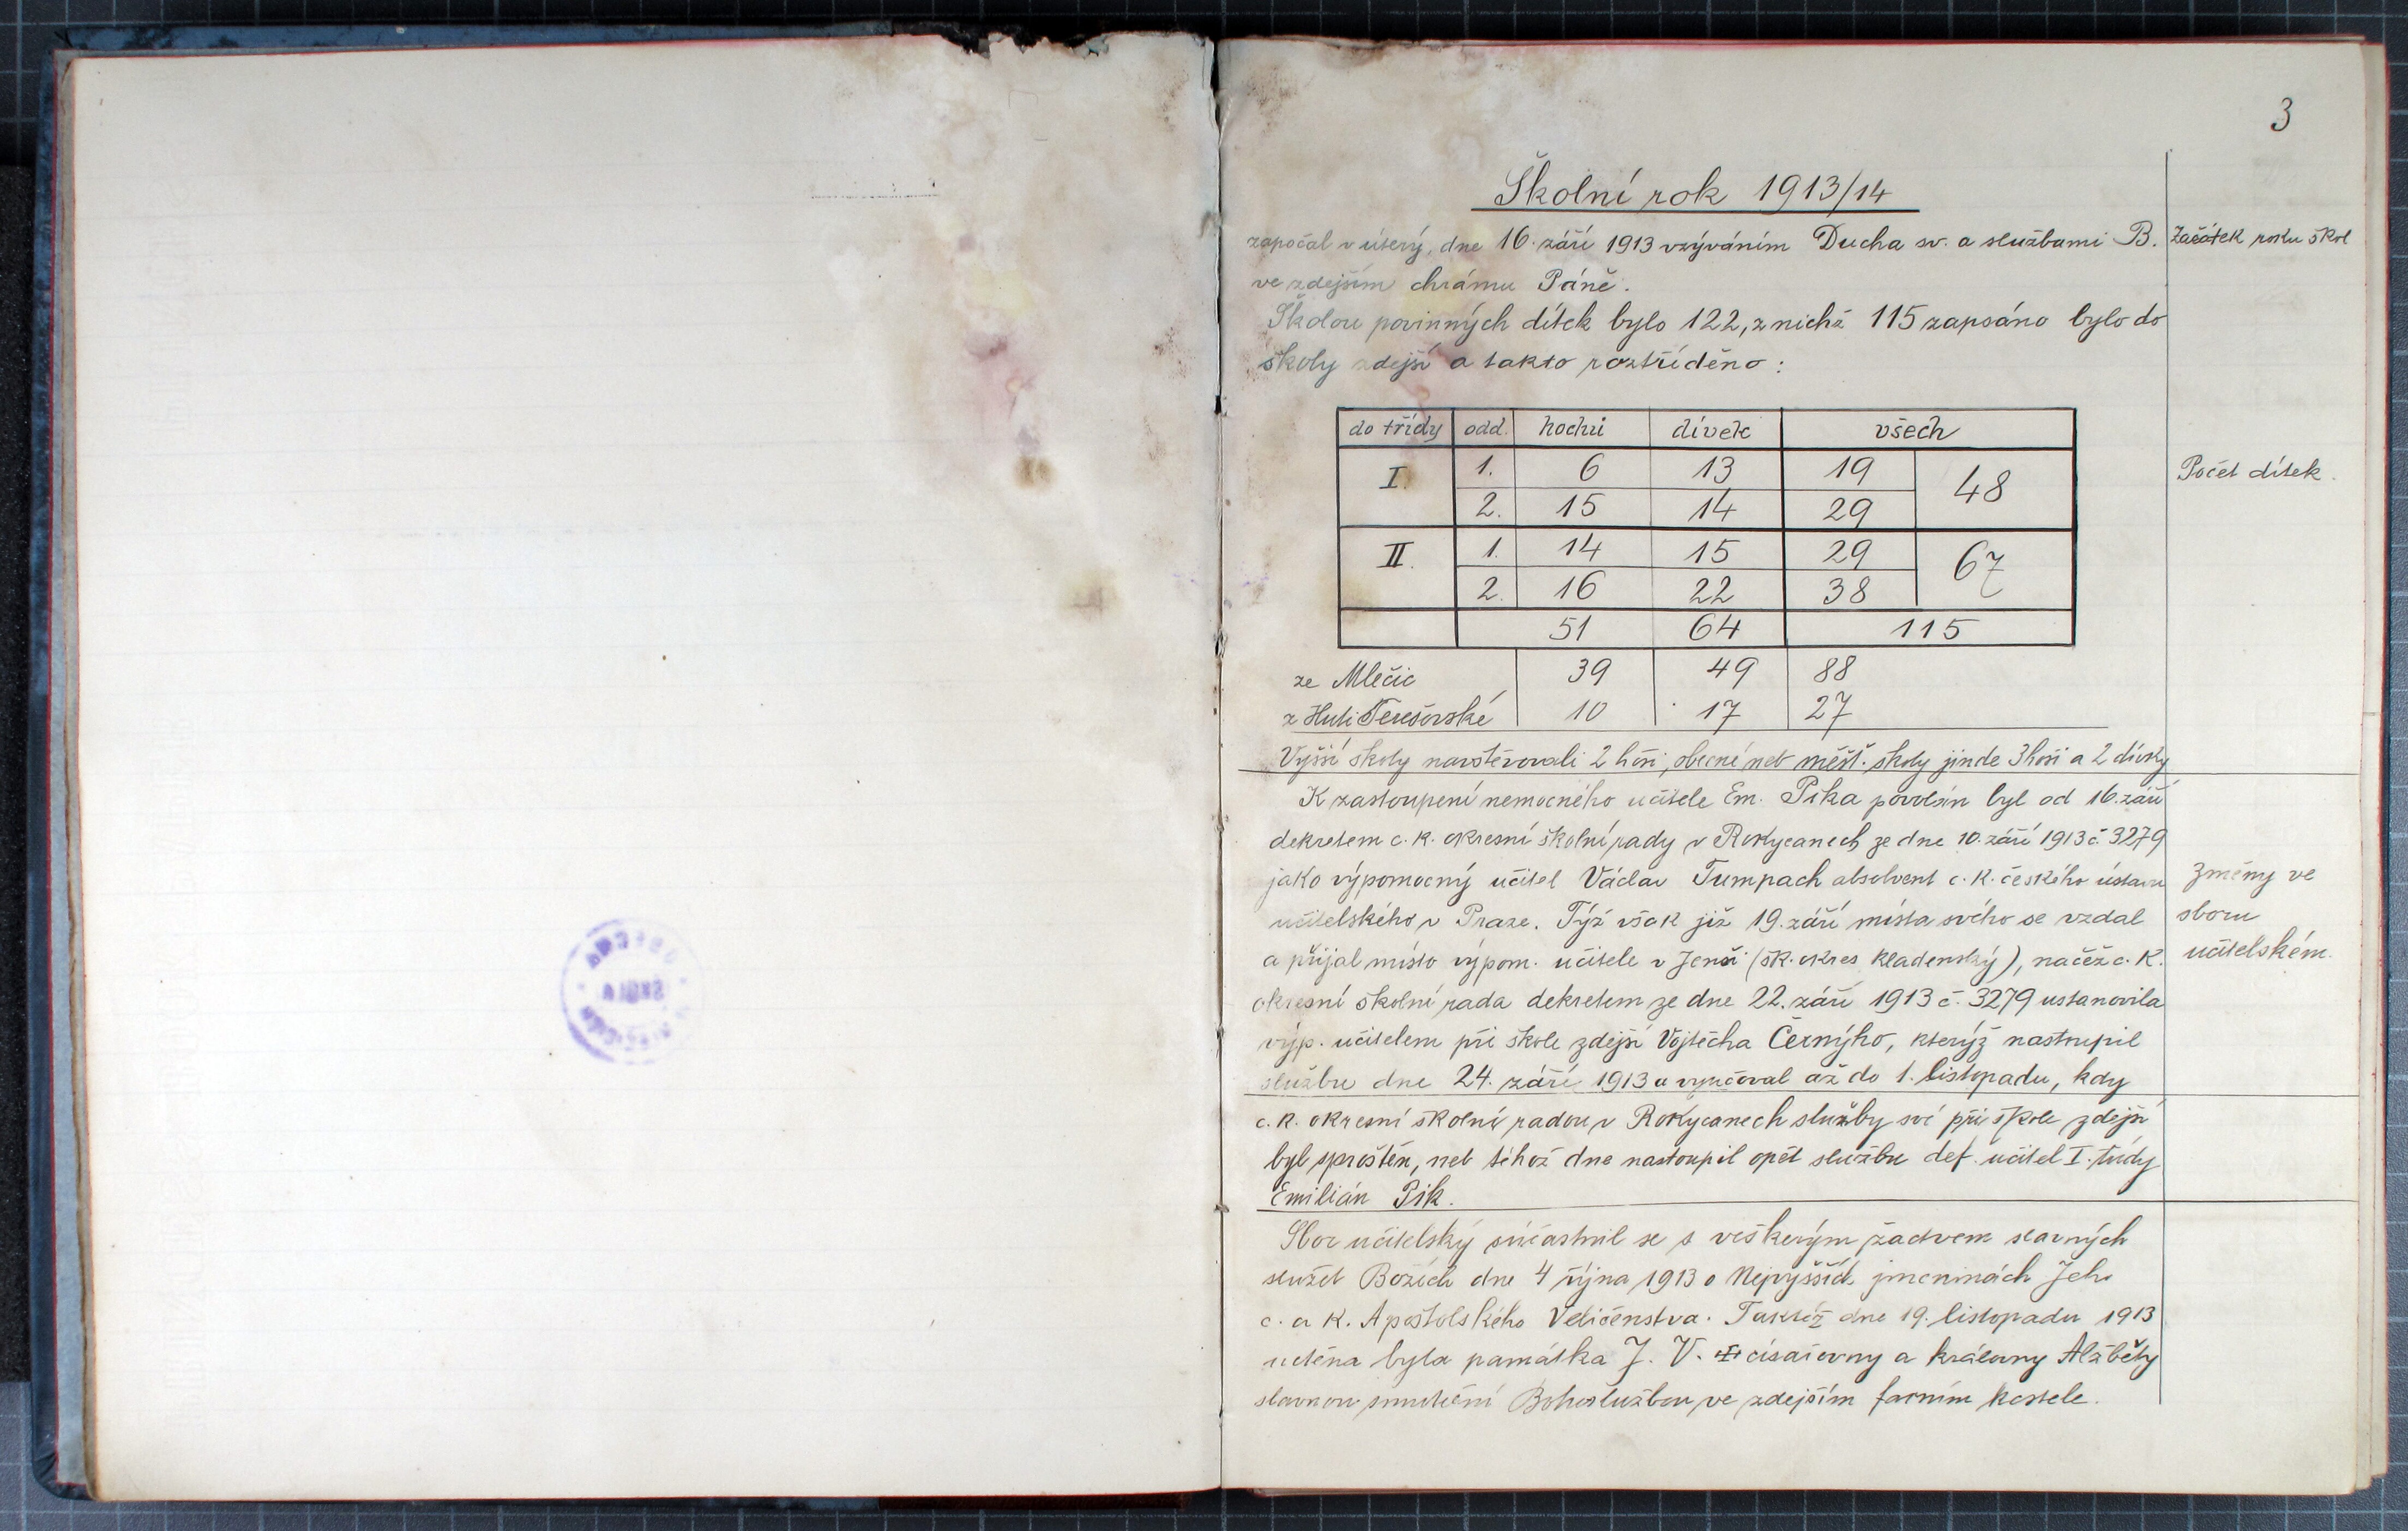 3
Školní rok 1913/14
započal v úterý, dne 16. září 1913 vzýváním Ducha sv. a službami B.
Začátek roku škol
ve zdejším chrámu Páně.
Školou povinných dítek bylo 122, z nichž 115 zapsáno bylo do
školy zdejší a takto roztříděno:
do třídy odd. hochů dívek všech
I. 1. 6 13 19 48
2. 15 14 29
Počet dítek.
II. 1. 14 15 29 67
2. 16 22 38
51 64 115
ze Mlečic 39 49 88
z Huti Terešovské 10 17 27
Vyšší školy navštěvovali 2 hoši, obecné neb měšť. školy jinde 3 hoši a 2 dívky
K zastoupení nemocného učitele Em. Pika povolán byl od 16. září
dekretem c. k. okresní školní rady v Rokycanech ze dne 10. září 1913 č. 3279
jako výpomocný učitel Václav Tumpach absolvent c. k. českého ústavu
učitelského v Praze. Týž však již 19. září místa svého se vzdal
a přijal místo výpom. učitele v Jenši (šk. okres kladenský), načež c. k.
okresní školní rada dekretem ze dne 22. září 1913 č. 3279 ustanovila
výp. učitelem při škole zdejší Vojtěcha Černýho, kterýž nastoupil
službu dne 24. září 1913 a vyučoval až do 1. listopadu, kdy
Změny ve
sboru
učitelském.
c. k. okresní školní radou v Rokycanech služby své při škole zdejší
byl sproštěn, neb téhož dne nastoupil opět službu def. učitel I. třídy
Emilián Pik.
Sbor učitelský súčastnil se s veškerým žactvem slavných
služeb Božích dne 4 října 1913 o Nejvyšších jmeninách Jeho
c. a k. Apoštolského Veličenstva. Taktéž dne 19. listopadu 1913
uctěna byla památka J. V. císařovny a královny Alžběty
slavnou smuteční Bohoslužbou ve zdejším farním kostele.